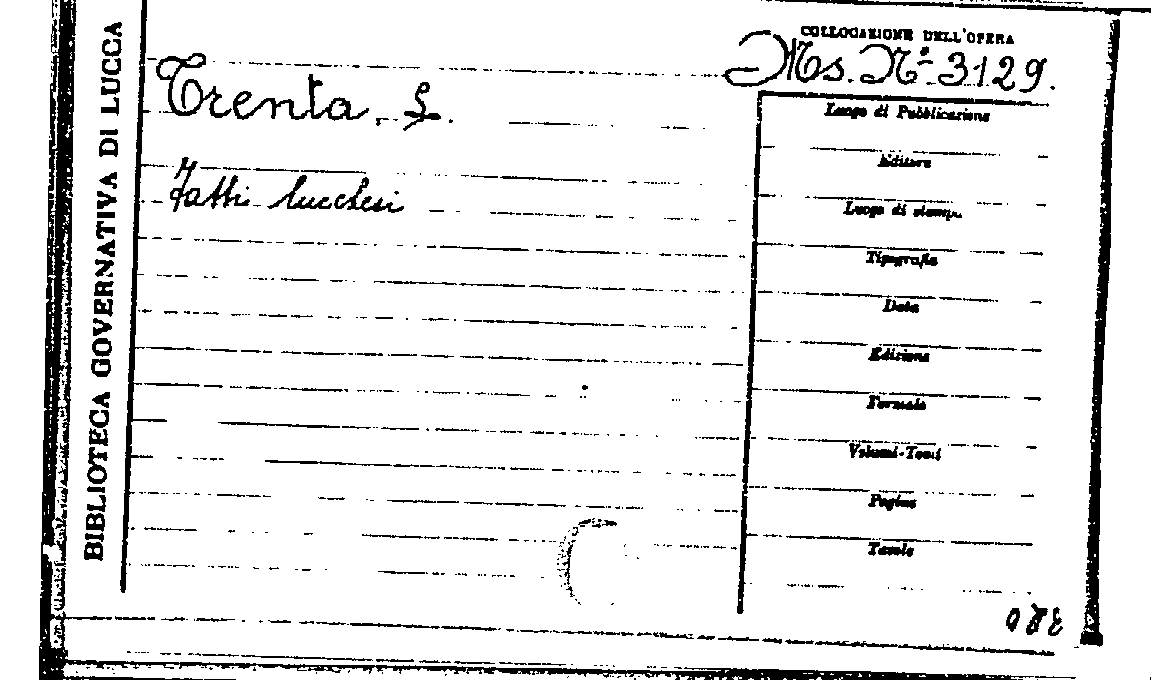 BIBLIOTECA GOVERNATIVA DI LUCCA
COLLOCAZIONE DELL'OPERA
Ms. Nº 3129.
Trenta,
Fatti lucchesi
Luogo di Pubblicazione
Editore
Luogo di stampa
Tipografia
Data
Edizione
Formato
Volumi-Tomi
Pagine
Tavole